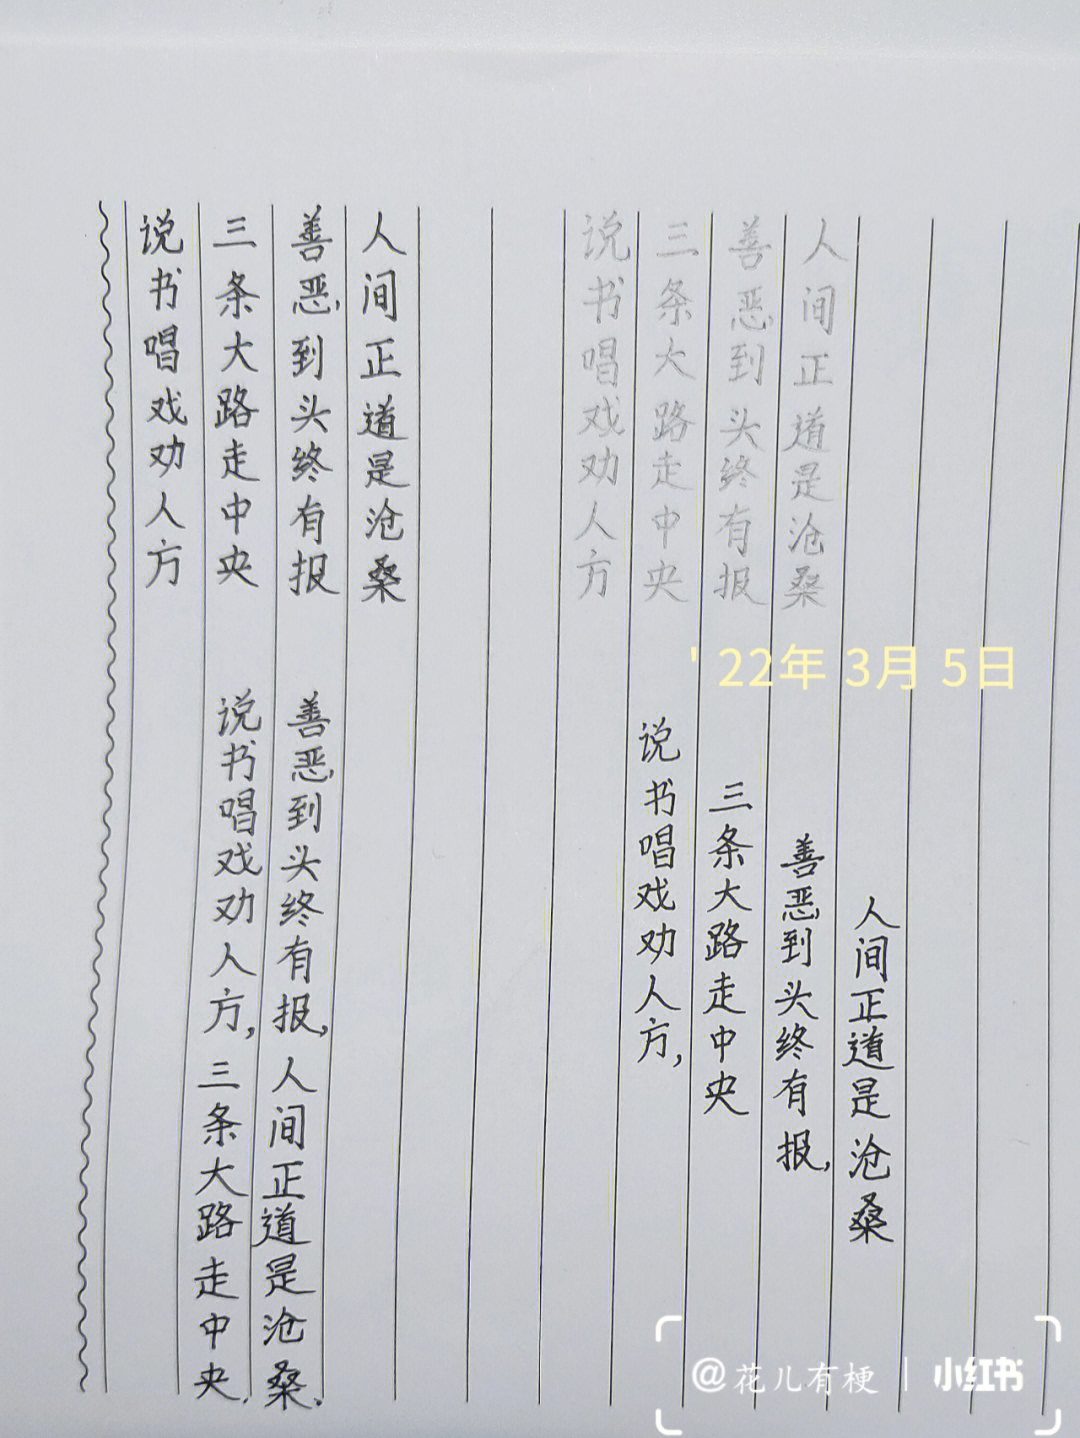 说书唱戏劝人方
三条大路走中央
善恶到头终有报
人间正道是沧桑
说书唱戏劝人方
三条大路走中央
善恶到头终有报
人间正道是沧桑
说书唱戏劝人方,三条大路走中央,
善恶到头终有报,人间正道是沧桑.
说书唱戏劝人方,
三条大路走中央
善恶到头终有报,
人间正道是沧桑
'22年 3月 5日
@花儿有梗 | 小红书